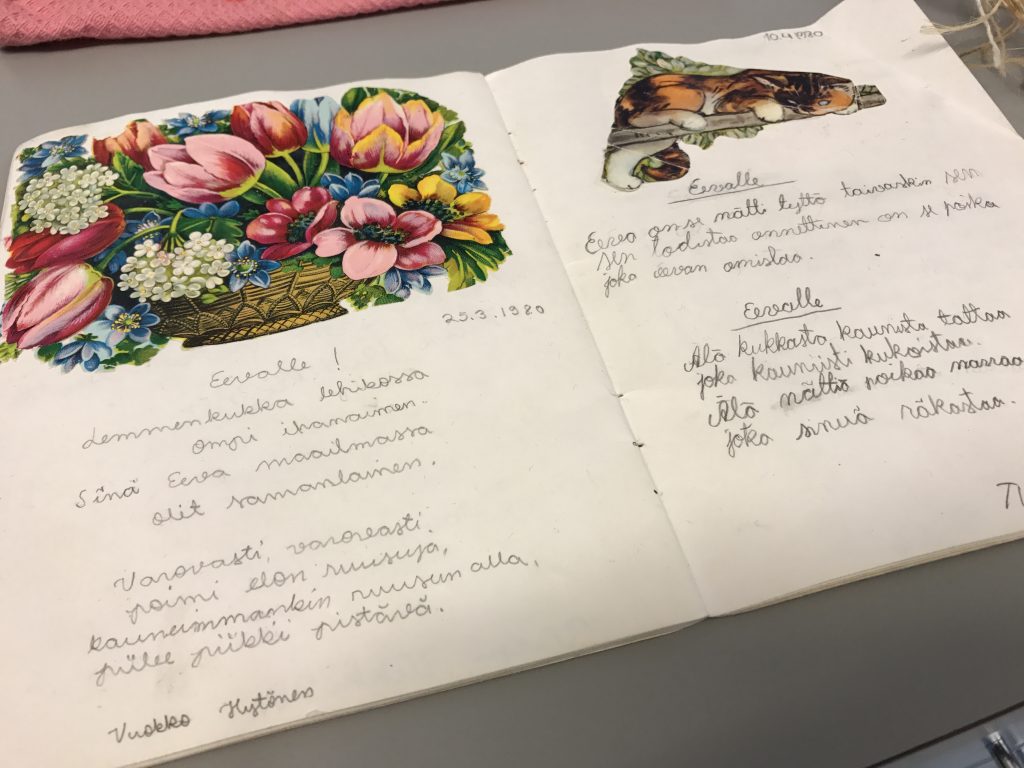 25.3.1980
Eevalle !
Lemmenkukka lehdossa
ompi ihanainen.
Sinä Eeva maailmassa
olit samanlainen.
Varovasti, varovasti
poimi elon ruusuja,
kauneimmankin ruusun alla,
piilee piikki pistävä.
Vuokko Hytönen
10.4.1980
Eevalle
Eeva on se nätti tyttö taivaskin sen
sen todistaa onnettinen on se poika
joka eevan omistaa.
Eevalle
Älä kukkasta kaunista taittaa
joka kauniisti kukoistaa.
Älä nättiä poikaa narraa
joka sinua rakastaa.